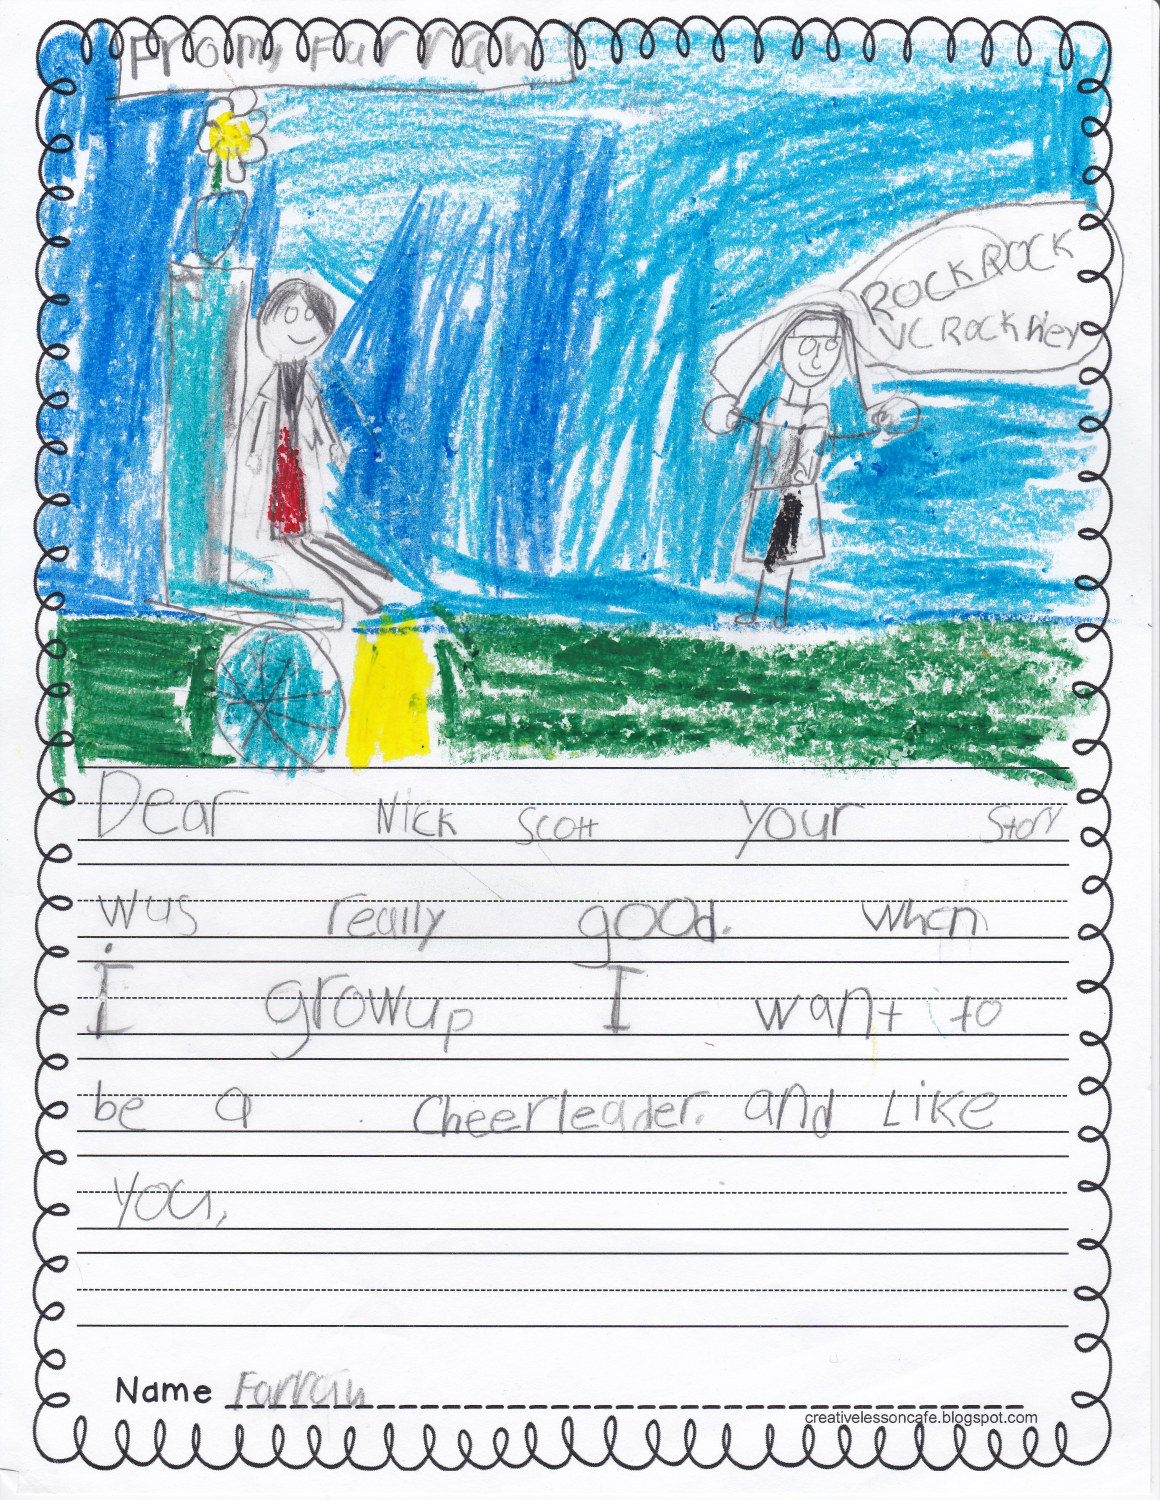 From, Farrah
ROCK ROCK
VC ROCK hiey
Dear Nick Scott your story
wus really good. when
I growup I want to
be a cheerleader. and Like
you,
Name Farrah
creativelessoncafe.blogspot.com